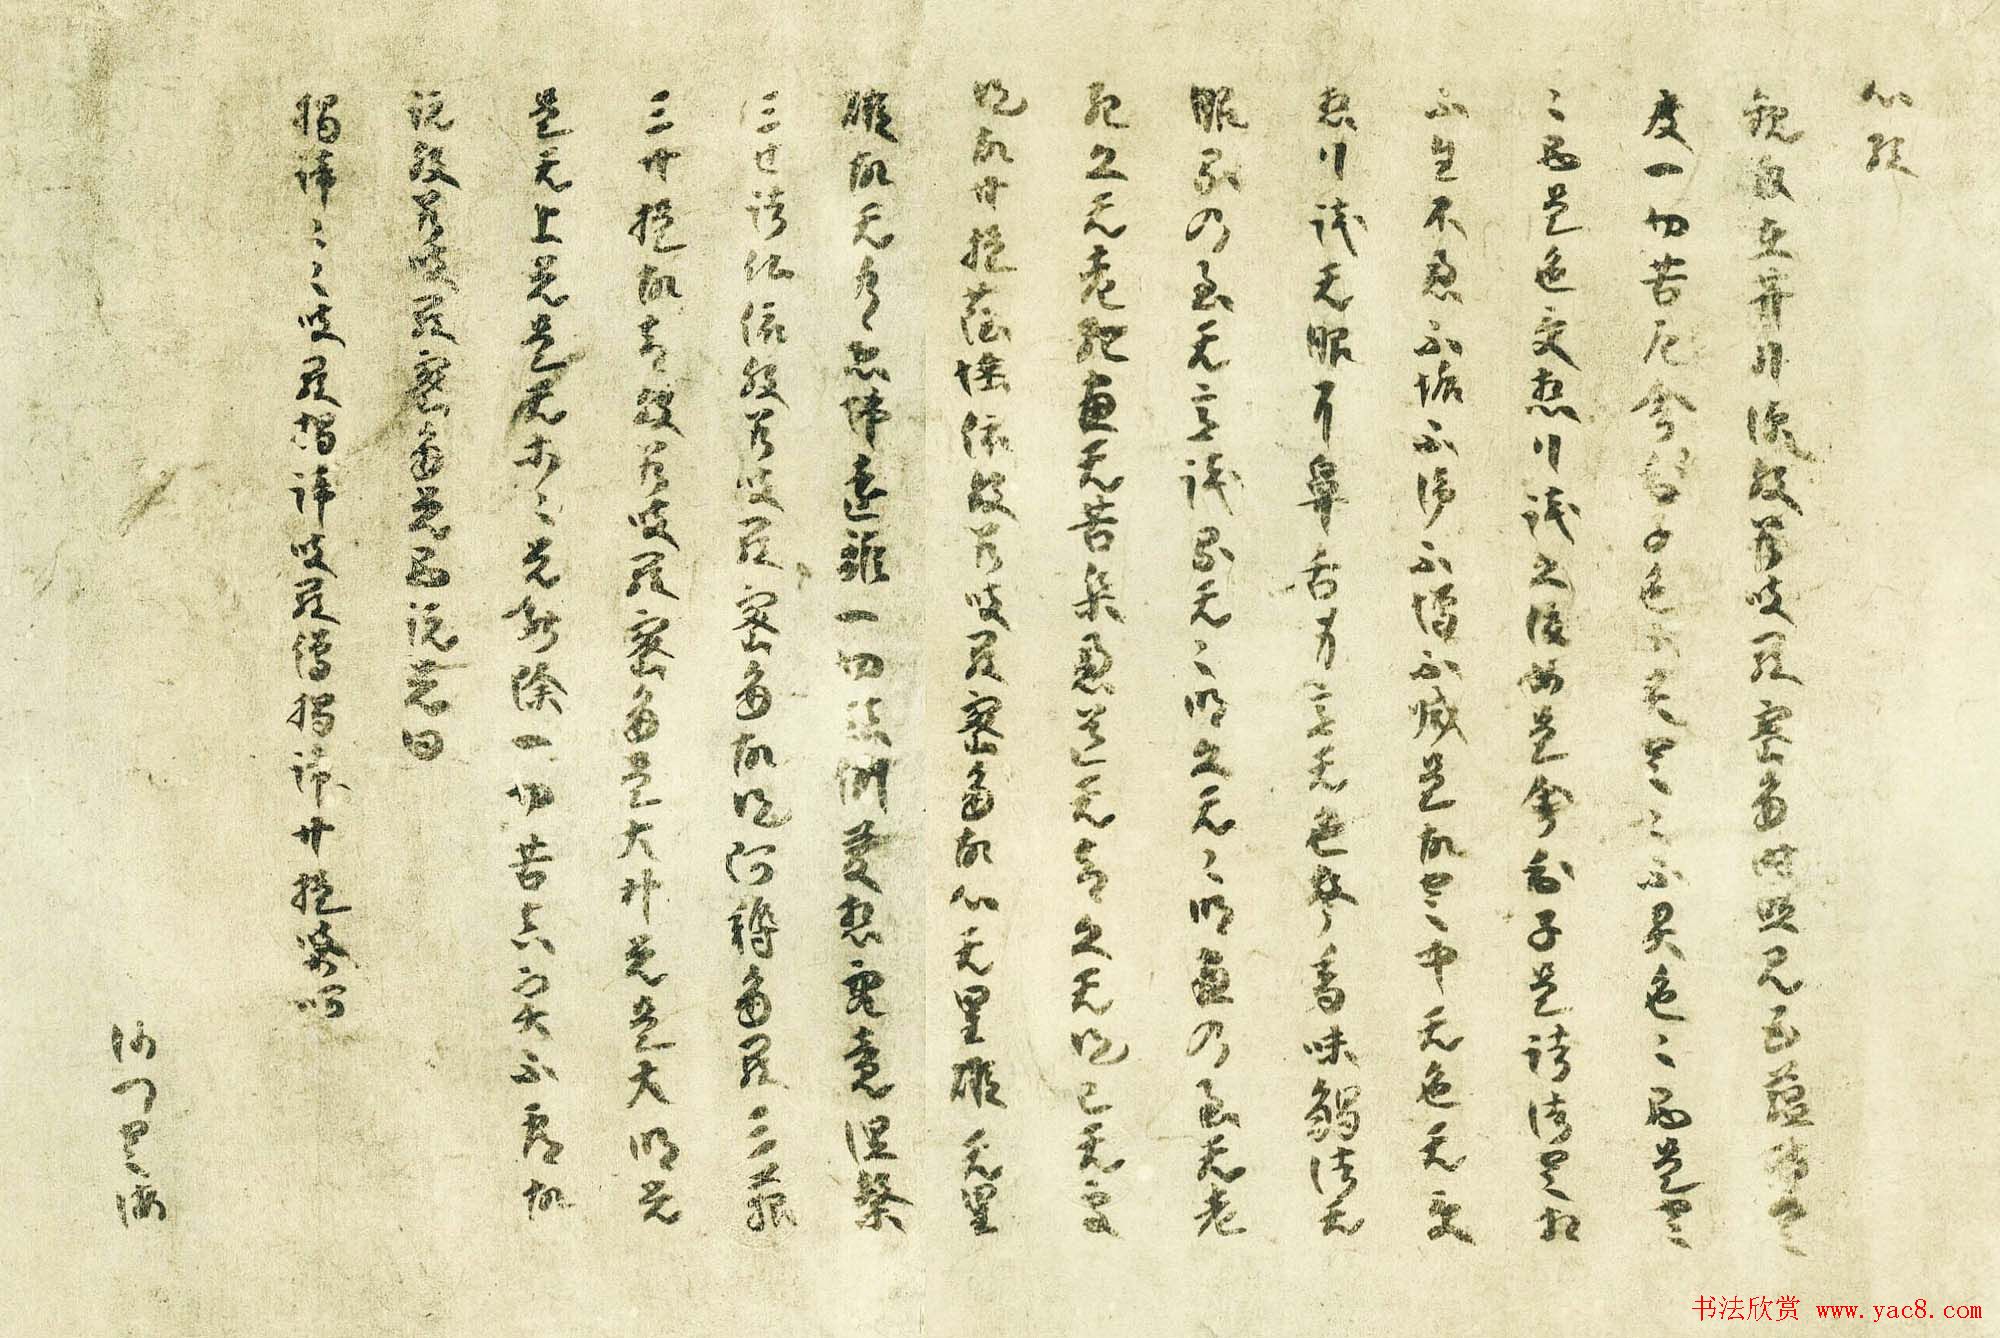 心经
観自在菩薩深般若波羅蜜多時照見五蘊皆空
度一切苦厄舍利子色不異空〻不異色〻即是空
〻即是色受想行識亦復如是舍利子是諸法空相
不生不滅不垢不浄不増不減是故空中无色无受
想行識无眼耳鼻舌身意无色聲香味觸法无
眼界乃至无意識界无〻明亦无〻明盡乃至无老
死亦无老死盡无苦集滅道无智亦无得已无所
得故菩提薩埵依般若波羅蜜多故心无罣礙无罣
礙故无有恐怖遠離一切顛倒夢想究竟涅槃
三世諸仏依般若波羅蜜多故得阿耨多羅三藐
三菩提故知般若波羅蜜多是大神咒是大明咒
是无上咒是无等〻咒能除一切苦真实不虚故
説般若波羅蜜多咒即説咒曰
揭諦〻〻波羅揭諦波羅僧揭諦菩提娑呵
沙門空海
书法欣赏 www.yac8.com